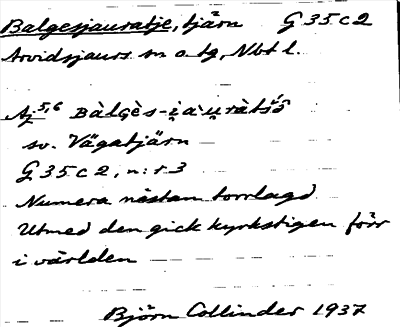 Balgesjauratje, tjärn G 35 c 2
Arvidsjaurs sn o. tg, Nbt l.
Aj 5,6 Bàlgès-i̯àu̯ràtšὸ̌
sv. Vägatjärn
G 35 c 2, n:r 3
Numera nästan torrlagd
Utmed den gick kyrkstigen förr
i världen
Björn Collinder 1937